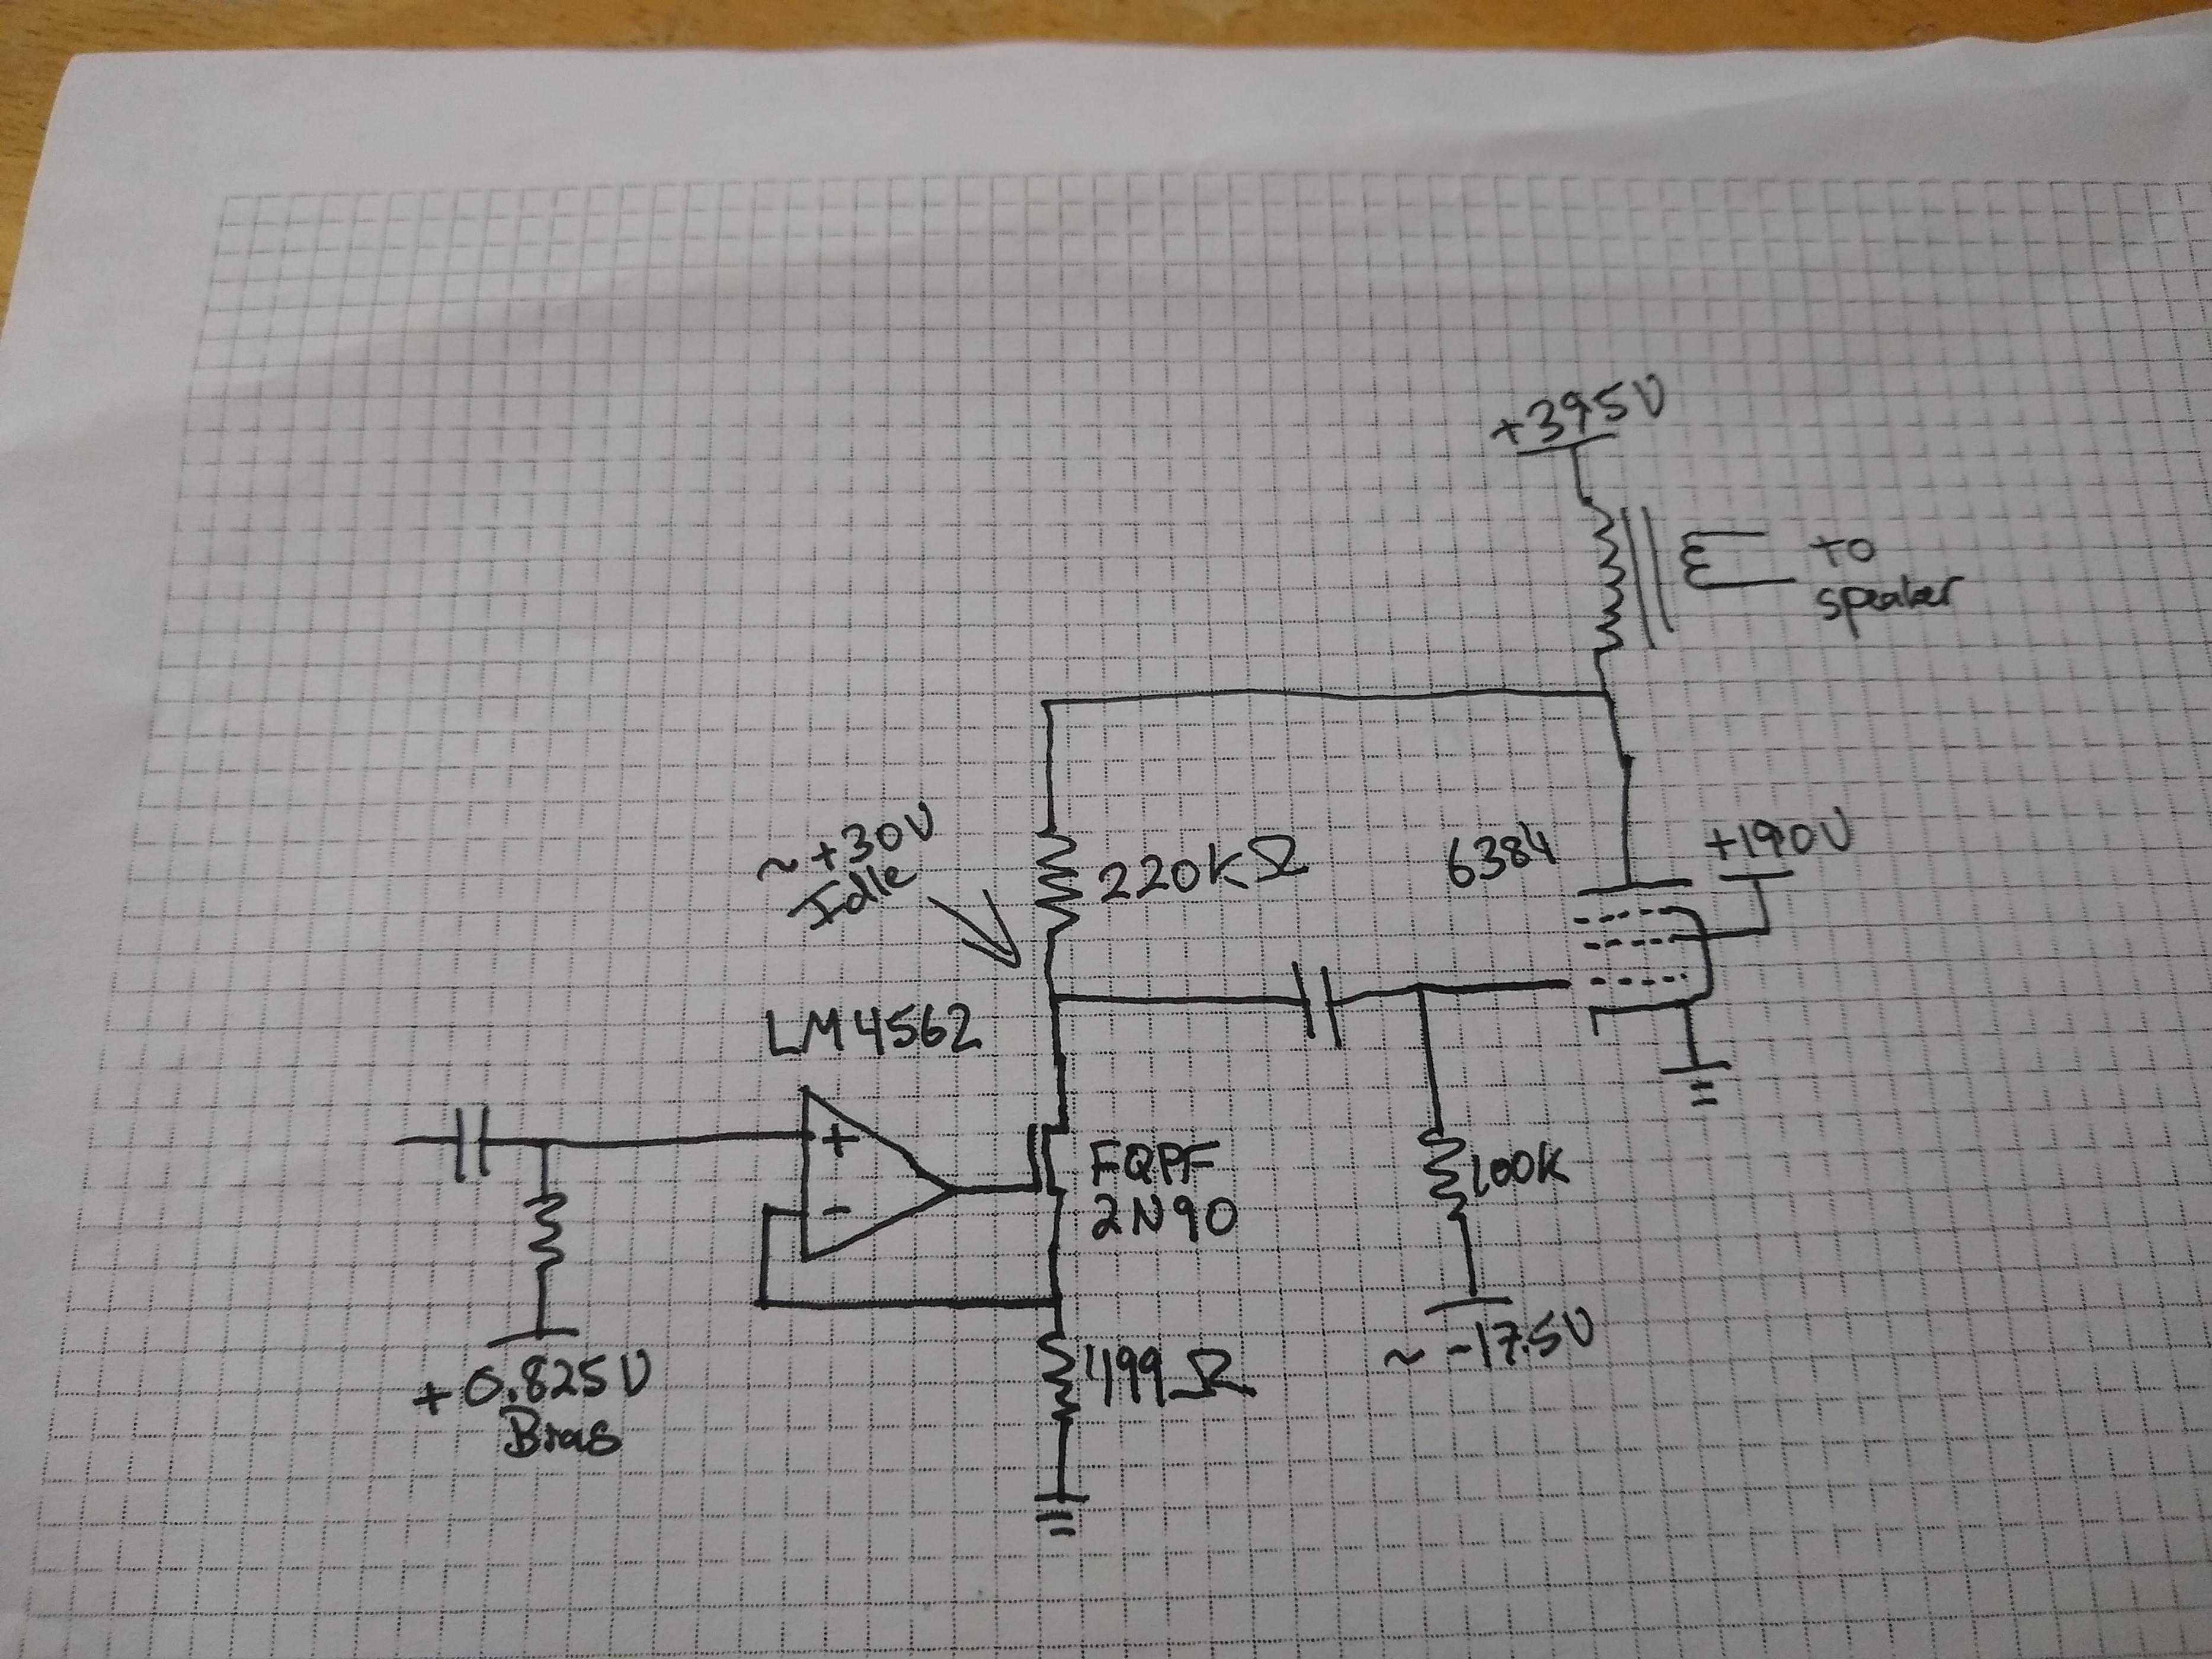 +395V
to
speaker
~+30V
Idle
220KΩ
6384
+190V
LM4562
+
-
FQPF
2N90
100K
+0.825V
Bias
499Ω
~-17.5V